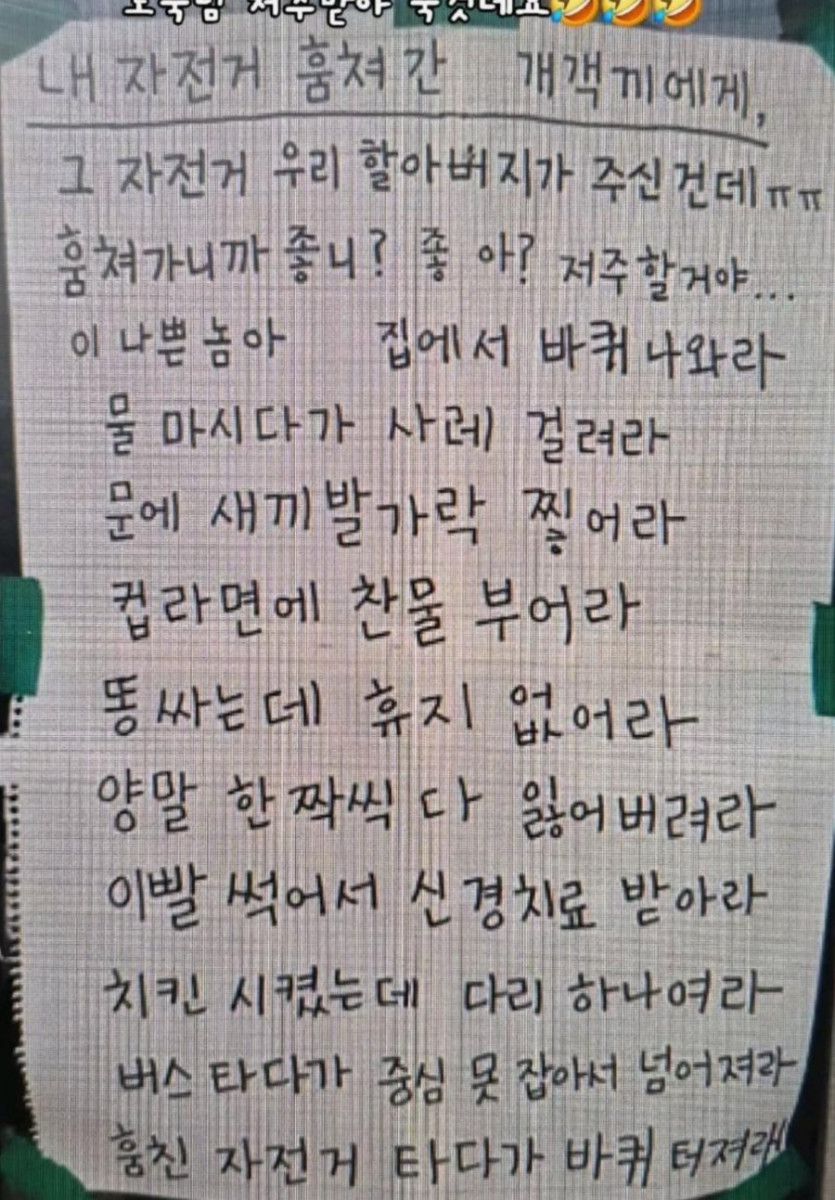 저주받아 죽것네요🤣🤣🤣
내 자전거 훔쳐간 개객끼에게,
그 자전거 우리 할아버지가 주신건데ㅠㅠ
훔쳐가니까 좋니? 좋 아? 저주할거야...
이 나쁜놈아 집에서 바퀴 나와라
물 마시다가 사레 걸려라
문에 새끼발가락 찧어라
컵라면에 찬물 부어라
똥싸는데 휴지 없어라
양말 한짝씩 다 잃어버려라
이빨 썩어서 신경치료 받아라
치킨 시켰는데 다리 하나여라
버스 타다가 중심 못 잡아서 넘어져라
훔친 자전거 타다가 바퀴 터져라!!